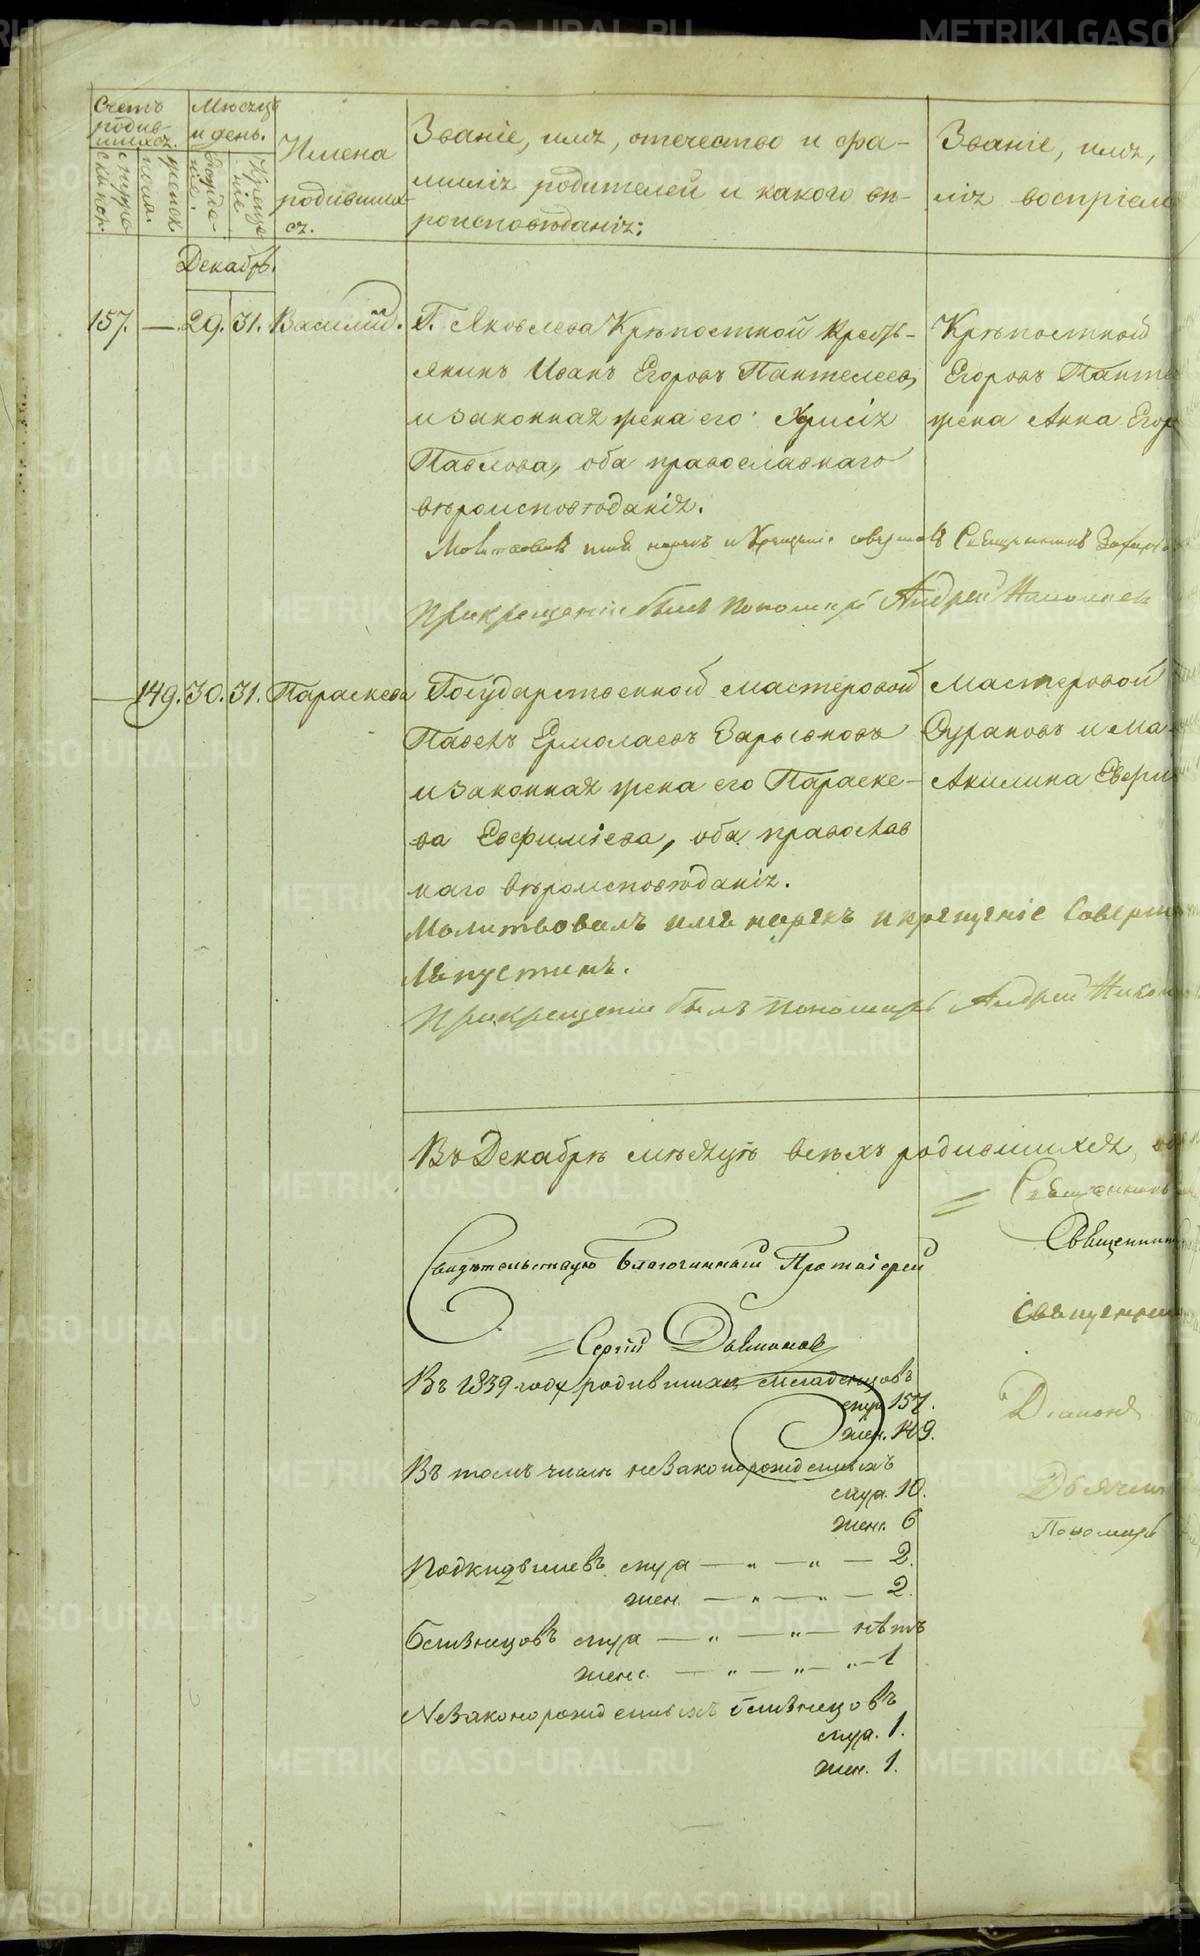 Счетъ родив- шихся.
Мѣсяцъ и день.
Имена родившихся.
Званіе, имя, отечество и фа-
милія родителей и какого вѣ-
роисповѣданія:
Званіе, имя,
лія воспріем
мужеска пола.
женск.
рожде- нія.
Креще- нія
Декабрь.
157. — 29. 31. Василій.
Г. Яковлева Крѣпостной Кресть-
янинъ Иванъ Егоровъ Пантелеевъ,
и законная жена его Хрисія
Павлова, оба православнаго
вѣроисповѣданія.
Крѣпостной
Егоровъ Панте
жена Анна Егор
Молитвовалъ имя нарекъ и Крещеніе совершалъ Священникъ
При крещеніи былъ Пономарь Андрей
— 149. 30. 31. Параскева
Государственной мастеровой
Павелъ Ермолаевъ
и законная жена его Параске-
ва Евфиміева, оба православ
наго вѣроисповѣданія.
Мастеровой
и ма
Акилина
Молитвовалъ имя нарекъ и крещеніе Соверш
Лѣпустинъ.
При крещеніи былъ Пономарь Андрей Никон
Въ Декабрѣ мѣсяцѣ всѣхъ родившихся,
Священникъ
Свидѣтельствую Благочинный Протоіерей
Священник
Сергій
Священник
Въ 1839 году родившихся младенцовъ
муж. 157.
жен. 149.
Діаконъ
Въ томъ числѣ незаконорожденныхъ
муж. 10.
женс. 6
Дьячекъ
Пономарь
Подкидышевъ муж — „ — „ — 2.
жен. — „ — „ — 2.
близнецовъ муж — „ — „ — нѣтъ
женс. — „ — „ — „ — 1
Незаконорожденныхъ близнецовъ
муж. 1.
жен. 1.
METRIKI.GASO-URAL.RU